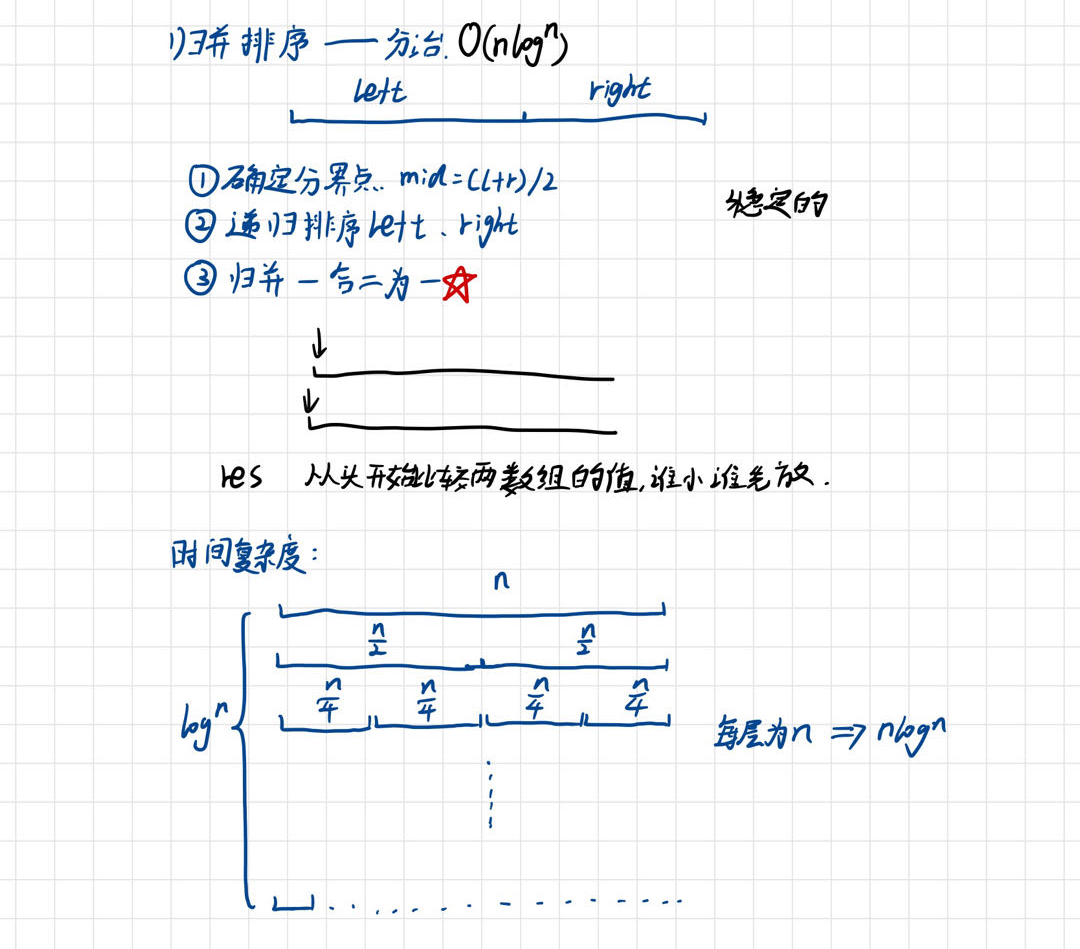 1)归并排序 —— 分治. O(nlogn)
left right
① 确定分界点. mid=(l+r)/2
稳定的
② 递归排序left、right
③ 归并 — 合二为一☆
res 从头开始比较两数组的值,谁小谁先放.
时间复杂度:
n
n/2 n/2
n/4 n/4 n/4 n/4
logn
每层为n => nlogn